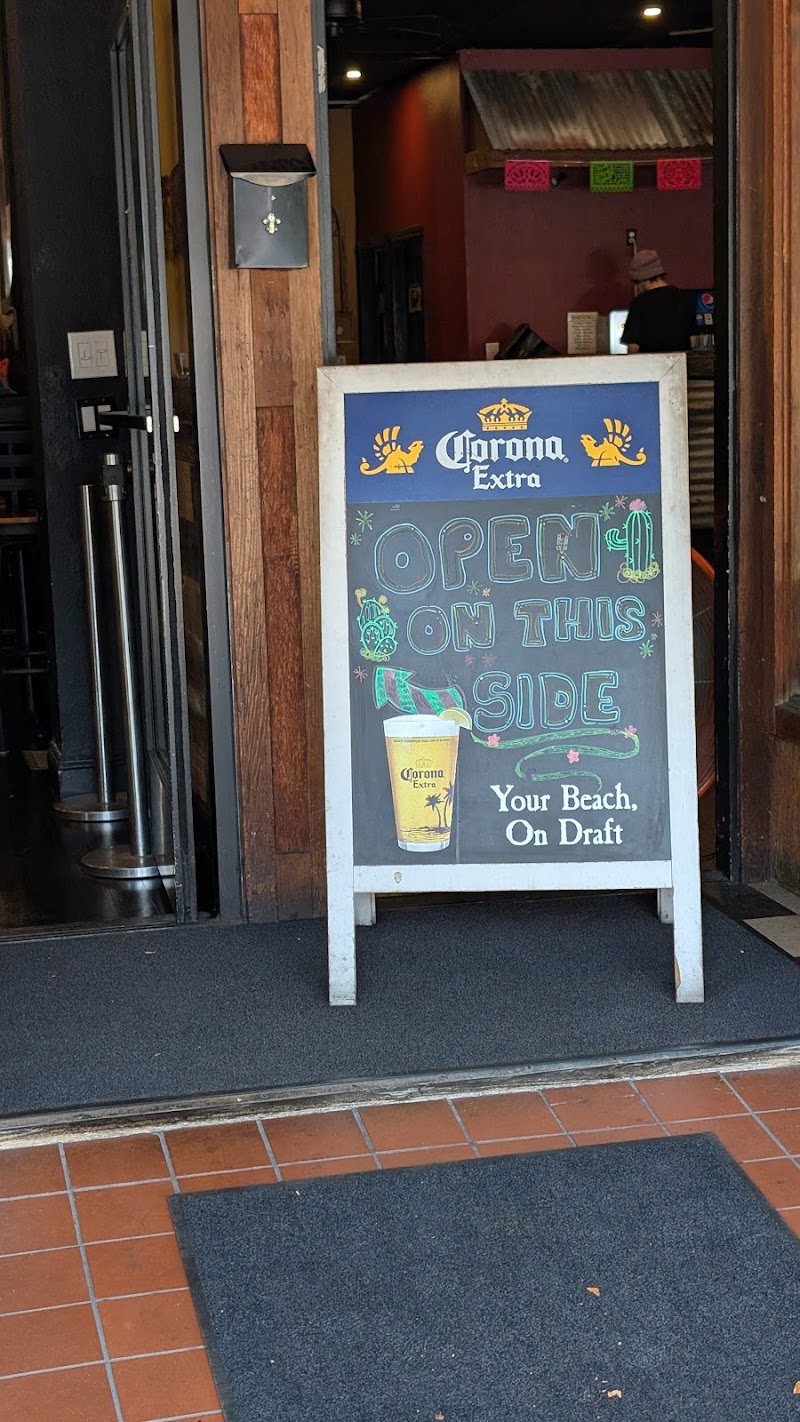 Corona
Extra
OPEN
ON THIS
SIDE
Corona
Extra
Your Beach,
On Draft